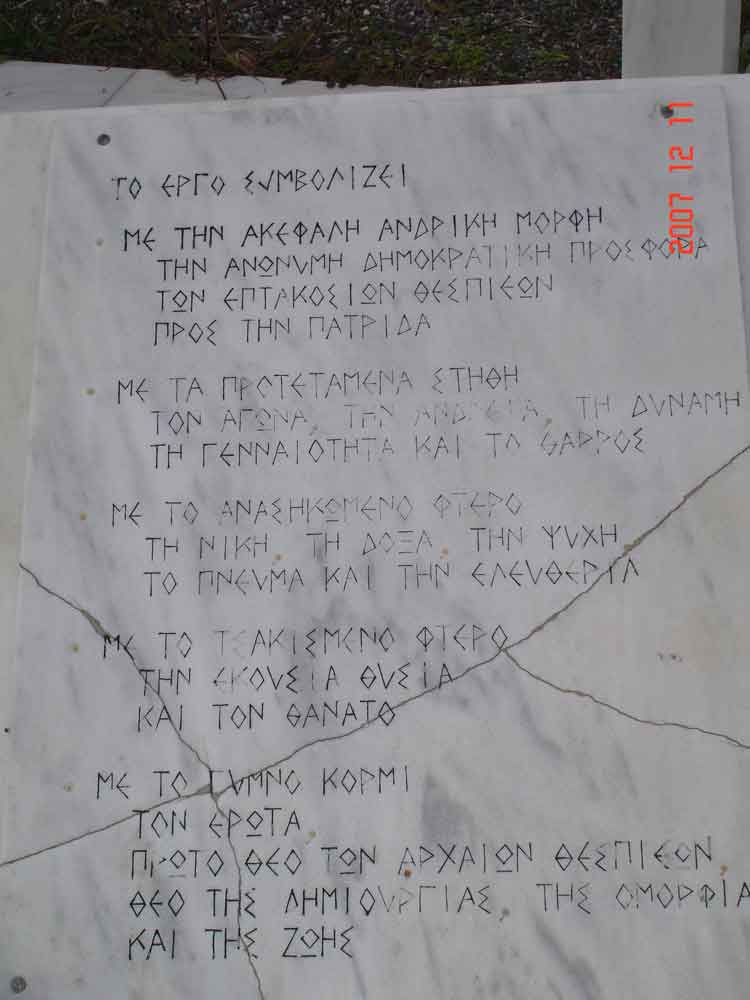 2007 12 11
ΤΟ ΕΡΓΟ ΣΥΜΒΟΛΙΖΕΙ
ΜΕ ΤΗΝ ΑΚΕΦΑΛΗ ΑΝΔΡΙΚΗ ΜΟΡΦΗ
ΤΗΝ ΑΝΩΝΥΜΗ ΔΗΜΟΚΡΑΤΙΚΗ ΠΡΟΣΦΟΡΑ
ΤΩΝ ΕΠΤΑΚΟΣΙΩΝ ΘΕΣΠΙΕΩΝ
ΠΡΟΣ ΤΗΝ ΠΑΤΡΙΔΑ
ΜΕ ΤΑ ΠΡΟΤΕΤΑΜΕΝΑ ΣΤΗΘΗ
ΤΟΝ ΑΓΩΝΑ, ΤΗΝ ΑΝΔΡΕΙΑ, ΤΗ ΔΥΝΑΜΗ
ΤΗ ΓΕΝΝΑΙΟΤΗΤΑ ΚΑΙ ΤΟ ΘΑΡΡΟΣ
ΜΕ ΤΟ ΑΝΑΣΗΚΩΜΕΝΟ ΦΤΕΡΟ
ΤΗ ΝΙΚΗ, ΤΗ ΔΟΞΑ, ΤΗΝ ΨΥΧΗ,
ΤΟ ΠΝΕΥΜΑ ΚΑΙ ΤΗΝ ΕΛΕΥΘΕΡΙΑ
ΜΕ ΤΟ ΤΣΑΚΙΣΜΕΝΟ ΦΤΕΡΟ
ΤΗΝ ΕΚΟΥΣΙΑ ΘΥΣΙΑ
ΚΑΙ ΤΟΝ ΘΑΝΑΤΟ
ΜΕ ΤΟ ΓΥΜΝΟ ΚΟΡΜΙ
ΤΟΝ ΕΡΩΤΑ,
ΠΡΩΤΟ ΘΕΟ ΤΩΝ ΑΡΧΑΙΩΝ ΘΕΣΠΙΕΩΝ,
ΘΕΟ ΤΗΣ ΔΗΜΙΟΥΡΓΙΑΣ, ΤΗΣ ΟΜΟΡΦΙΑ
ΚΑΙ ΤΗΣ ΖΩΗΣ